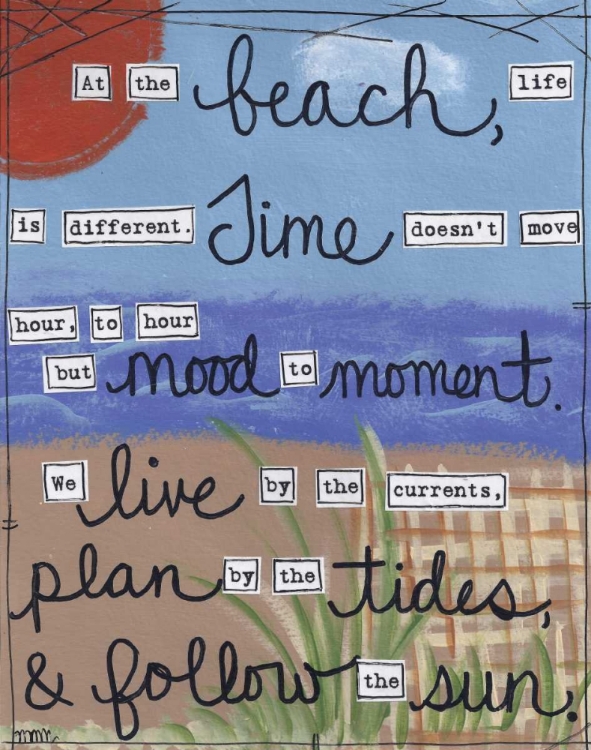 At the beach, life
is different. Time doesn't move
hour, to hour
but mood to moment.
We live by the currents,
plan by the tides,
& follow the sun.